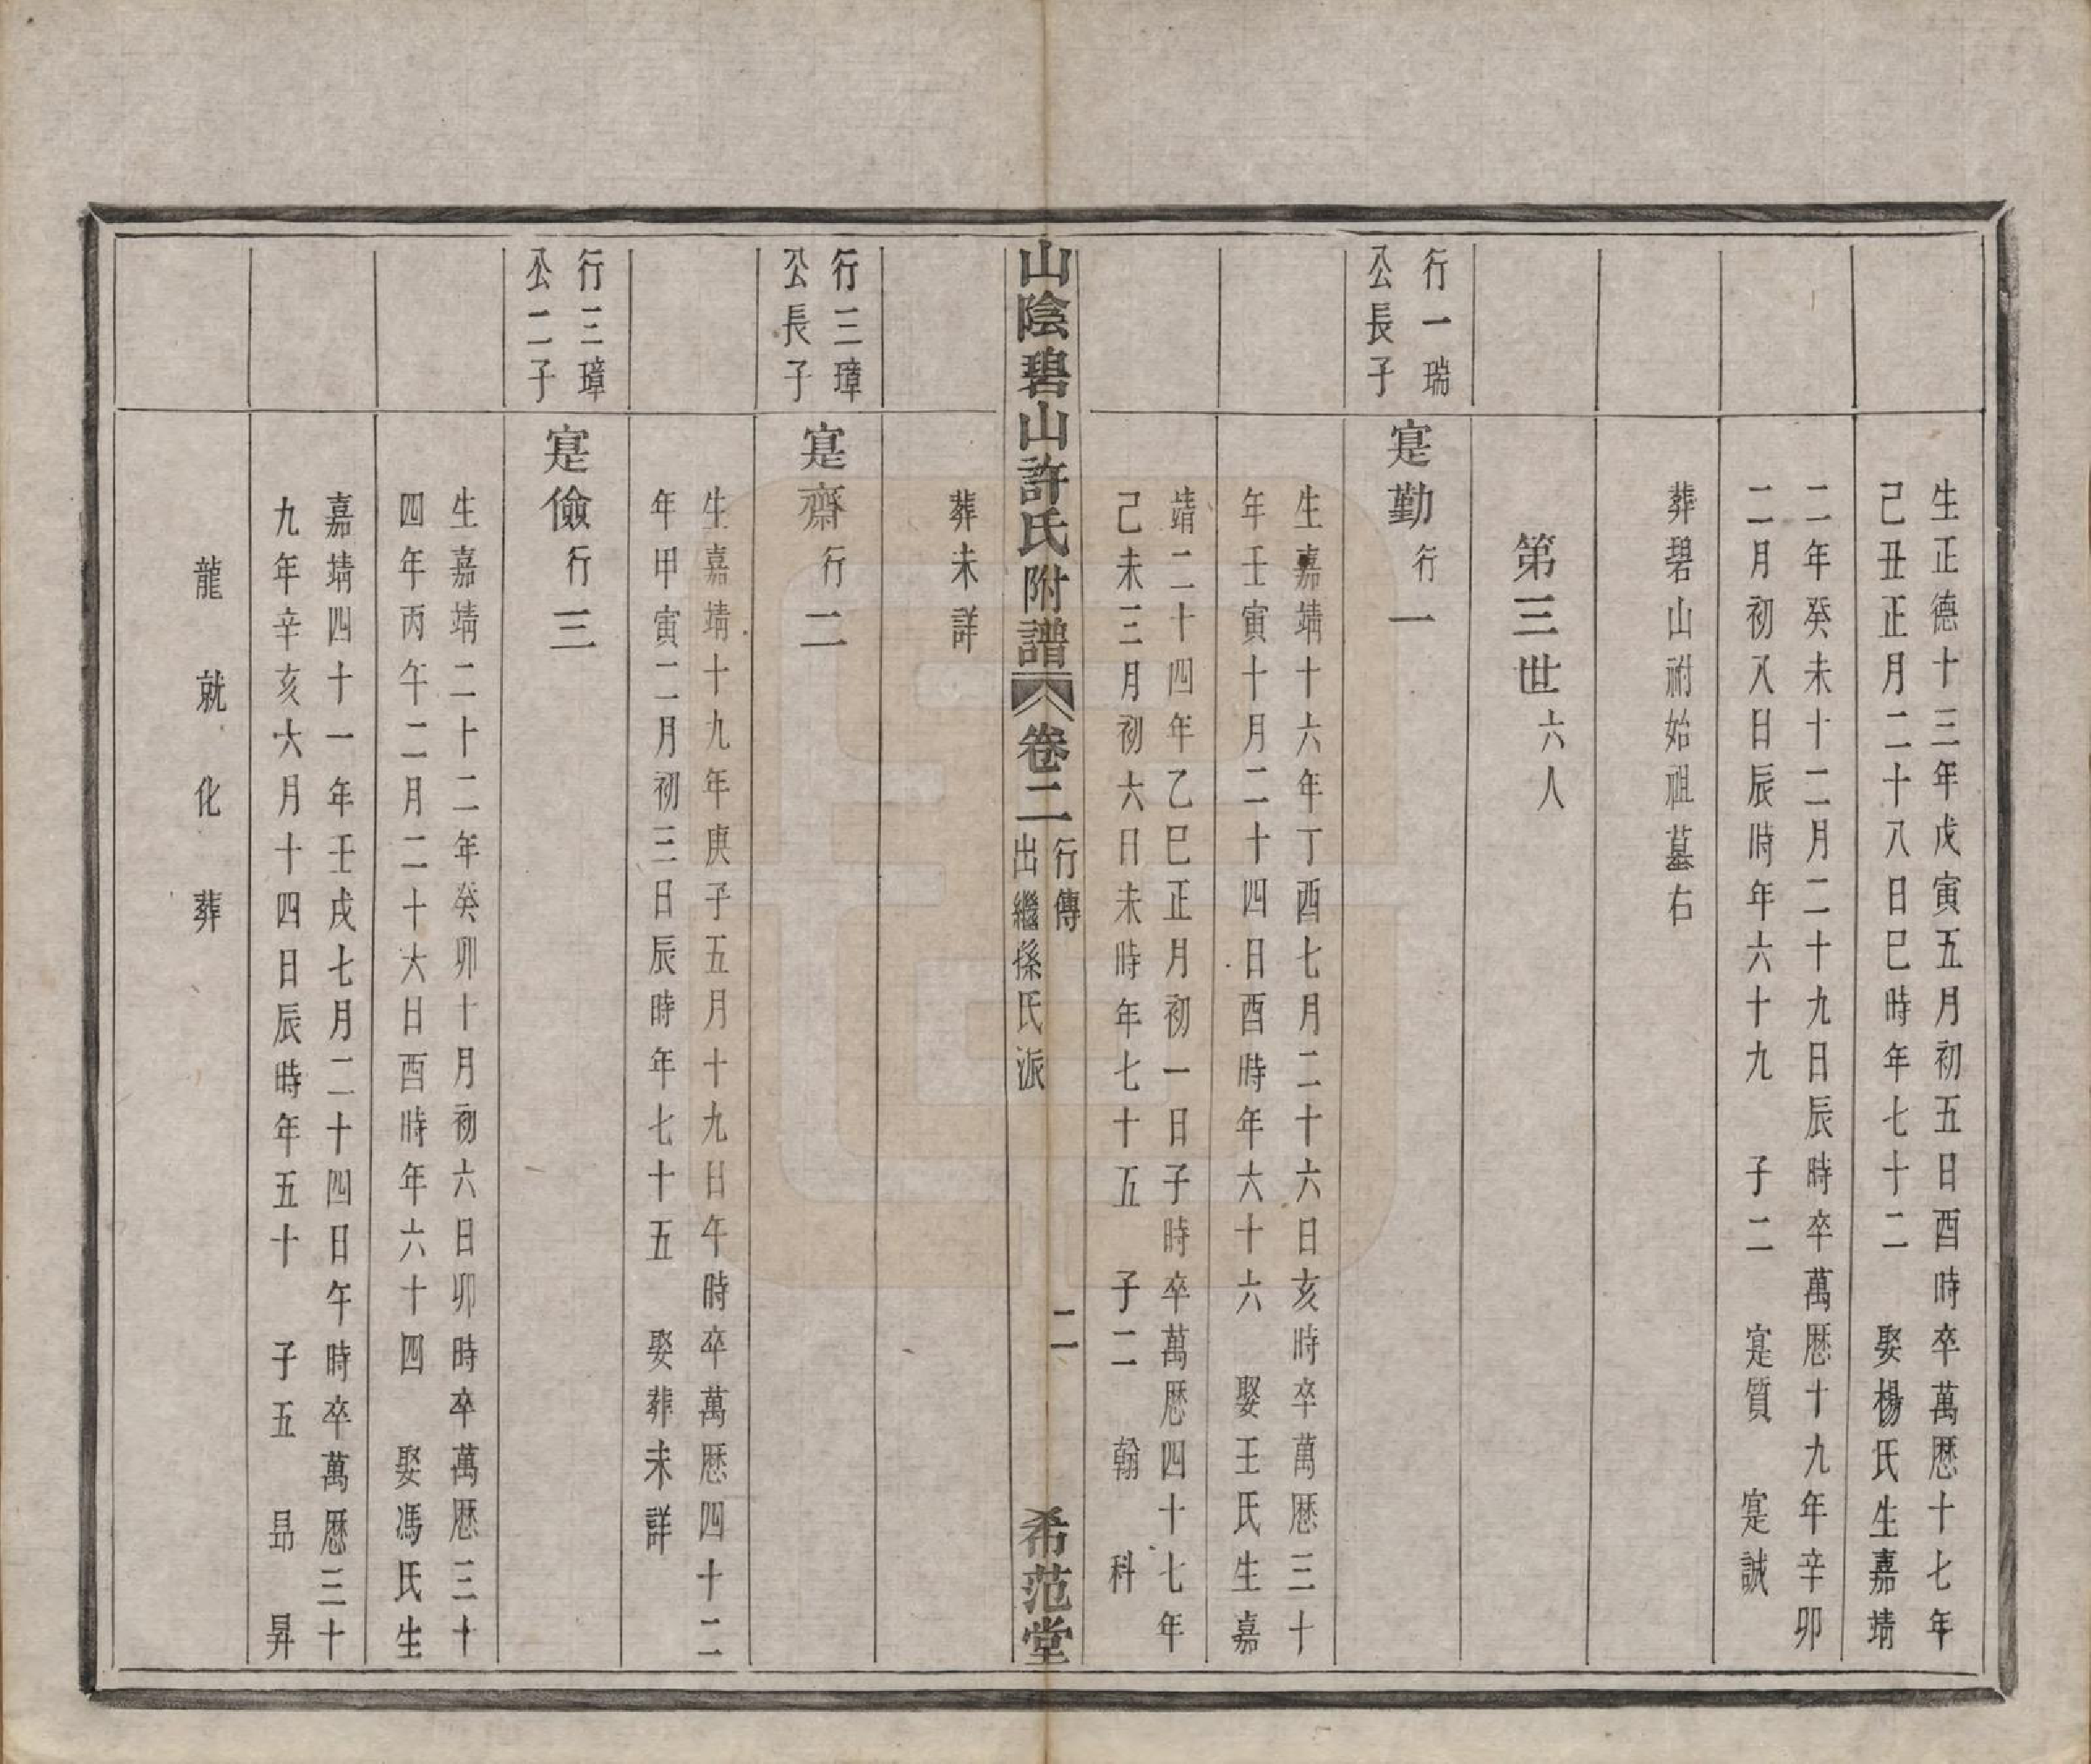 生正德十三年戊寅五月初五日酉時卒萬厯十七年
己丑正月二十八日巳時年七十二　娶楊氏生嘉靖
二年癸未十二月二十九日辰時卒萬厯十九年辛卯
二月初八日辰時年六十九　子二　寔質　寔誠
葬碧山祔始祖墓右
第三世六人
行一瑞
公長子
寔勤行一
生嘉靖十六年丁酉七月二十六日亥時卒萬厯三十
年壬寅十月二十四日酉時年六十六　娶王氏生嘉
靖二十四年乙巳正月初一日子時卒萬厯四十七年
己未三月初六日未時年七十五　子二　翰　科
山陰碧山許氏附譜卷二行傳
出繼孫氏派
二
希范堂
葬未詳
行三璋
公長子
寔齋行二
生嘉靖十九年庚子五月十九日午時卒萬厯四十二
年甲寅二月初三日辰時年七十五　娶葬未詳
行三璋
公二子
寔儉行三
生嘉靖二十二年癸卯十月初六日卯時卒萬厯三十
四年丙午二月二十六日酉時年六十四　娶馮氏生
嘉靖四十一年壬戌七月二十四日午時卒萬厯三十
九年辛亥六月十四日辰時年五十　子五　昻　昇
龍　就　化　葬